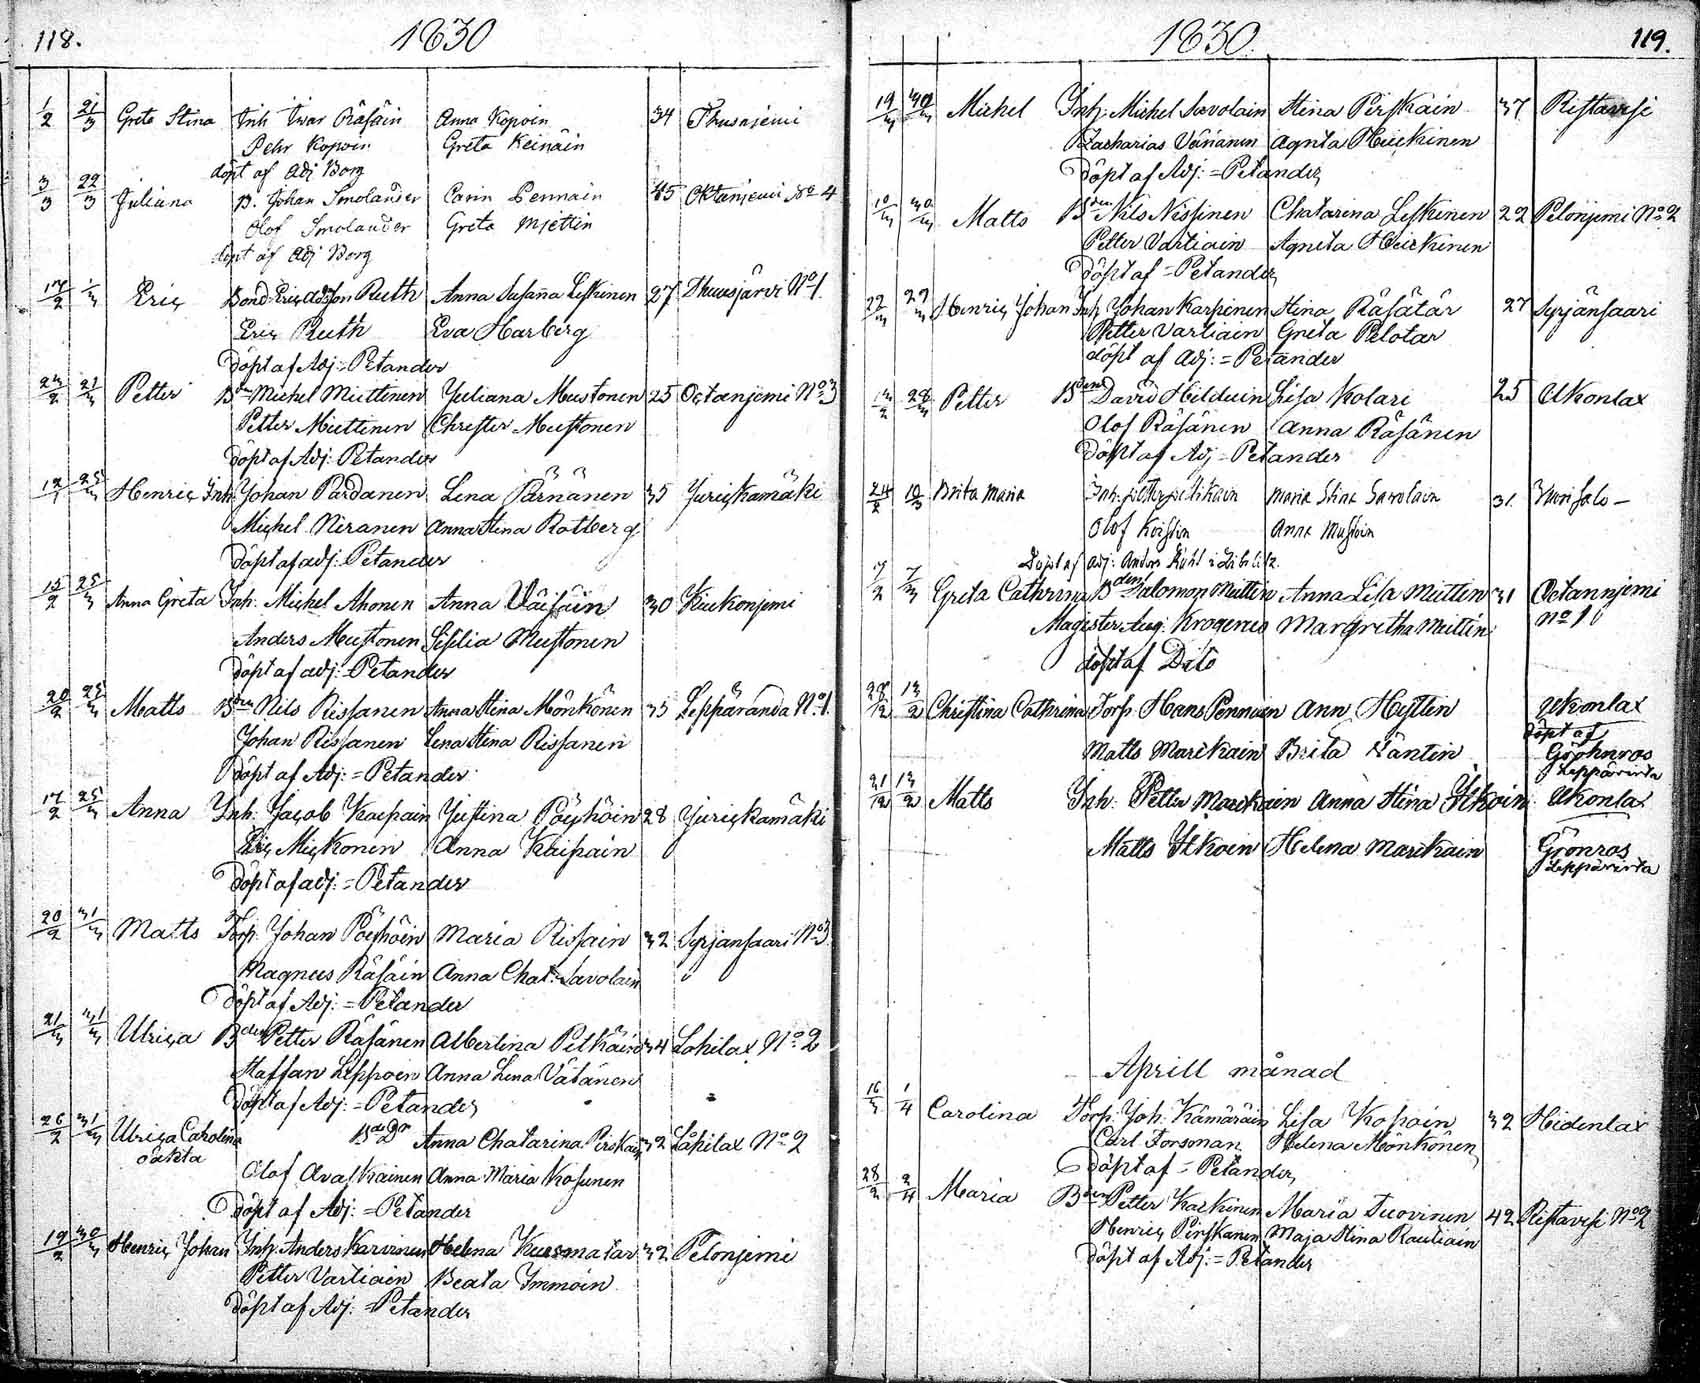 118.
1830
1/2 21/3 Greta Stina Inh Iwar Räsäin Anna Kopoin 34 Thusniemi
Pehr Kopoin Greta Keinäin
döpt af Adj Borg
3/3 22/3 Juliana B. Johan Smolander Carin Pennain 45 Oktaniemi No 4
Olof Smolander Greta Miettin
döpt af Adj Borg
17/2 Eric Bond: Eric Adsson Ruth Anna Susanna Leskinen 27 Thuusjärvi No 1.
Eric Ruth Eva Harberg
döpt af Adj: Petander
Petter Bdn Michel Miettinen Juliana Mustonen 25 Octanjemi No 3
Petter Miettinen Christer Mustonen
döpt af Adj: Petander
Henric Inh: Johan Pardanen Lena Pärnänen 35 Jurickamäki
Michel Niranen Anna Stina Rotberg
döpt af adj: Petander
Anna Greta Inh: Michel Ahonen Anna Väisäin 30 Kiukonjemi
Anders Mustonen Sesilia Mustonen
döpt af adj: Petander
Matts Bden Nils Rissanen Anna Stina Mönkönen 35 Leppäranda No 1.
Johan Rissanen Lena Stina Rissanen
döpt af Adj: = Petander
17/2 25/3 Anna Inh: Jacob Kaipain Justina Pöyhöin 28 Jurickamäki
Eric Mickonen Anna Kaipain
döpt af adj: = Petander
20/2 31/3 Matts Torp. Johan Pöyhöin Maria Rissain 32 Syrjänsaari No 3
Magnus Räsäin Anna Chat: Savolain
döpt af Adj: = Petander
21/3 31/3 Ulrica Bden Petter Räsänen Albertina Pitkäin 34 Lohilax No 2
Staffan Leppoin Anna Lena Vätänen
döpt af Adj: = Petander
26/2 31/3 Ulrica Carolina Bde Dr Anna Chatarina Perskain 32 Låhilax No 2
oäkta
Olof Avaskainen Anna Maria Kosunen
döpt af Adj: = Petander
19/2 30/3 Henric Johan Inh: Anders Karvinen Helena Kuosmatar 32 Pelonjemi
Petter Vartiain Beata Immoin
döpt af Adj: = Petander
1830.
119.
19/3 30/3 Michel Inh: Michel Savolain Stina Pirskäin 37 Ristavesi
Zacharias Väinänen Agnita Heickinen
döpt af Adj: = Petander
10/3 30/3 Matts Bden Nils Nissinen Chatarina Leskinen 22 Pelonjemi No 2
Petter Vartiain Agneta Heickinen
döpt af = Petander
Henric Johan Inh Johan Karhinen Stina Räsätär 27 Syrjänsaari
Petter Vartiain Greta Pelotar
döpt af Adj: = Petander
Petter Bden David Hilduin Lisa Kolari 25 Ukonlax
Olof Räsänen Anna Räsänen
döpt af Adj = Petander
24/2 10/3 Brita Maria Inh. Petter Pitkäin Maria Stina Savolain 31.
Olof Koistin Anna Mustoin
Döpt af Adj: Anders
7/2 7/3 Greta Cathrina Bden Salomon Miettin Anna Lisa Miettin 31 Octannjemi
Magister Aug: Krogerus Margretha Miettin No 1
döpt af Dito
Christina Cathrina Torp: Hans Pennain Ann Hyttin Ukonlax
döpt af
Matts Marckain Brita Läntin Gröhnros
Leppävirta
21/12 13/2 Matts Inh: Petter Marckain Anna Stina Itkoin Ukonlax
Matts Itkoin Helena Marckain Grönros
Leppävirta
Aprill månad
16/3 1/4 Carolina Torp: Joh. Kämäräin Lisa Kopoin 32 Hidenlax
Carl Torsonan Helena Mönkönen
döpt af = Petander
28/2 2/4 Maria Bden Petter Kaikinen Maria Tuovinen 42 Ristavesi No 2
Henric Pirskanen Maja Stina Rautiain
döpt af Adj: = Petander